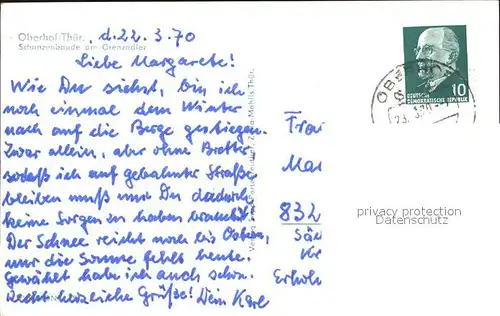 Oberhof/Thür. d. 22. 3. 70
Schanzenbaude am Grenzadler
Liebe Margarete!
Wie Du siehst, bin ich
noch einmal dem Winter
nach auf die Berge gestiegen.
Zwar allein, aber ohne Bretter,
sodaß ich auf gebahnter Straße
bleiben muß und Du dadurch
keine Sorgen zu haben brauchst.
Der Schnee reicht noch bis Ostern,
nur die Sonne fehlt heute.
Gewählt habe ich auch schon.
Recht herzliche Grüße! Dein Karl
10
DEUTSCHE
DEMOKRATISCHE REPUBLIK
832
Erhol
privacy protection
Datenschutz